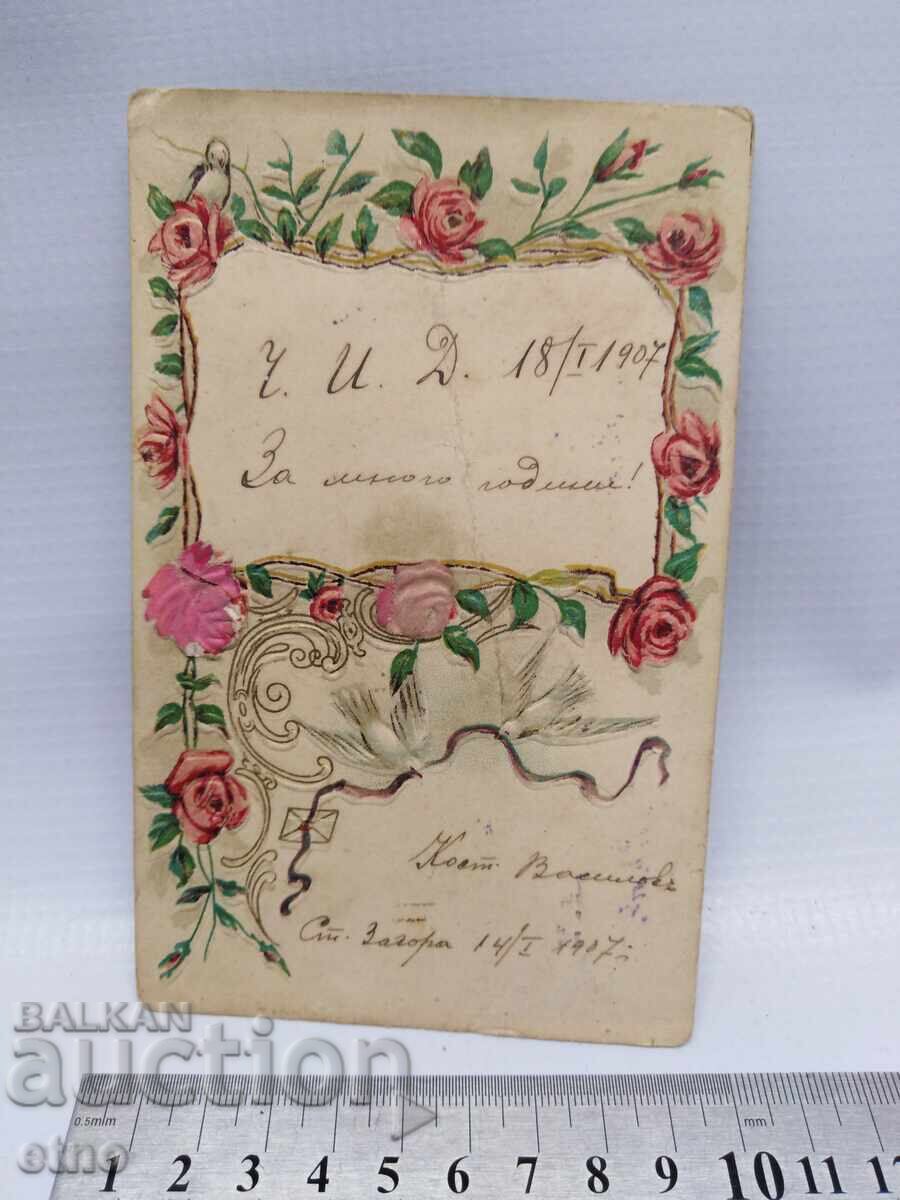 Ч. И. Д. 18/I 1907
За много години!
Кост. Василовъ
Ст. Загора 14/I 1907
BALKAN
auction
etno
0.5mm
mm
1 2 3 4 5 6 7 8 9 10 11 12